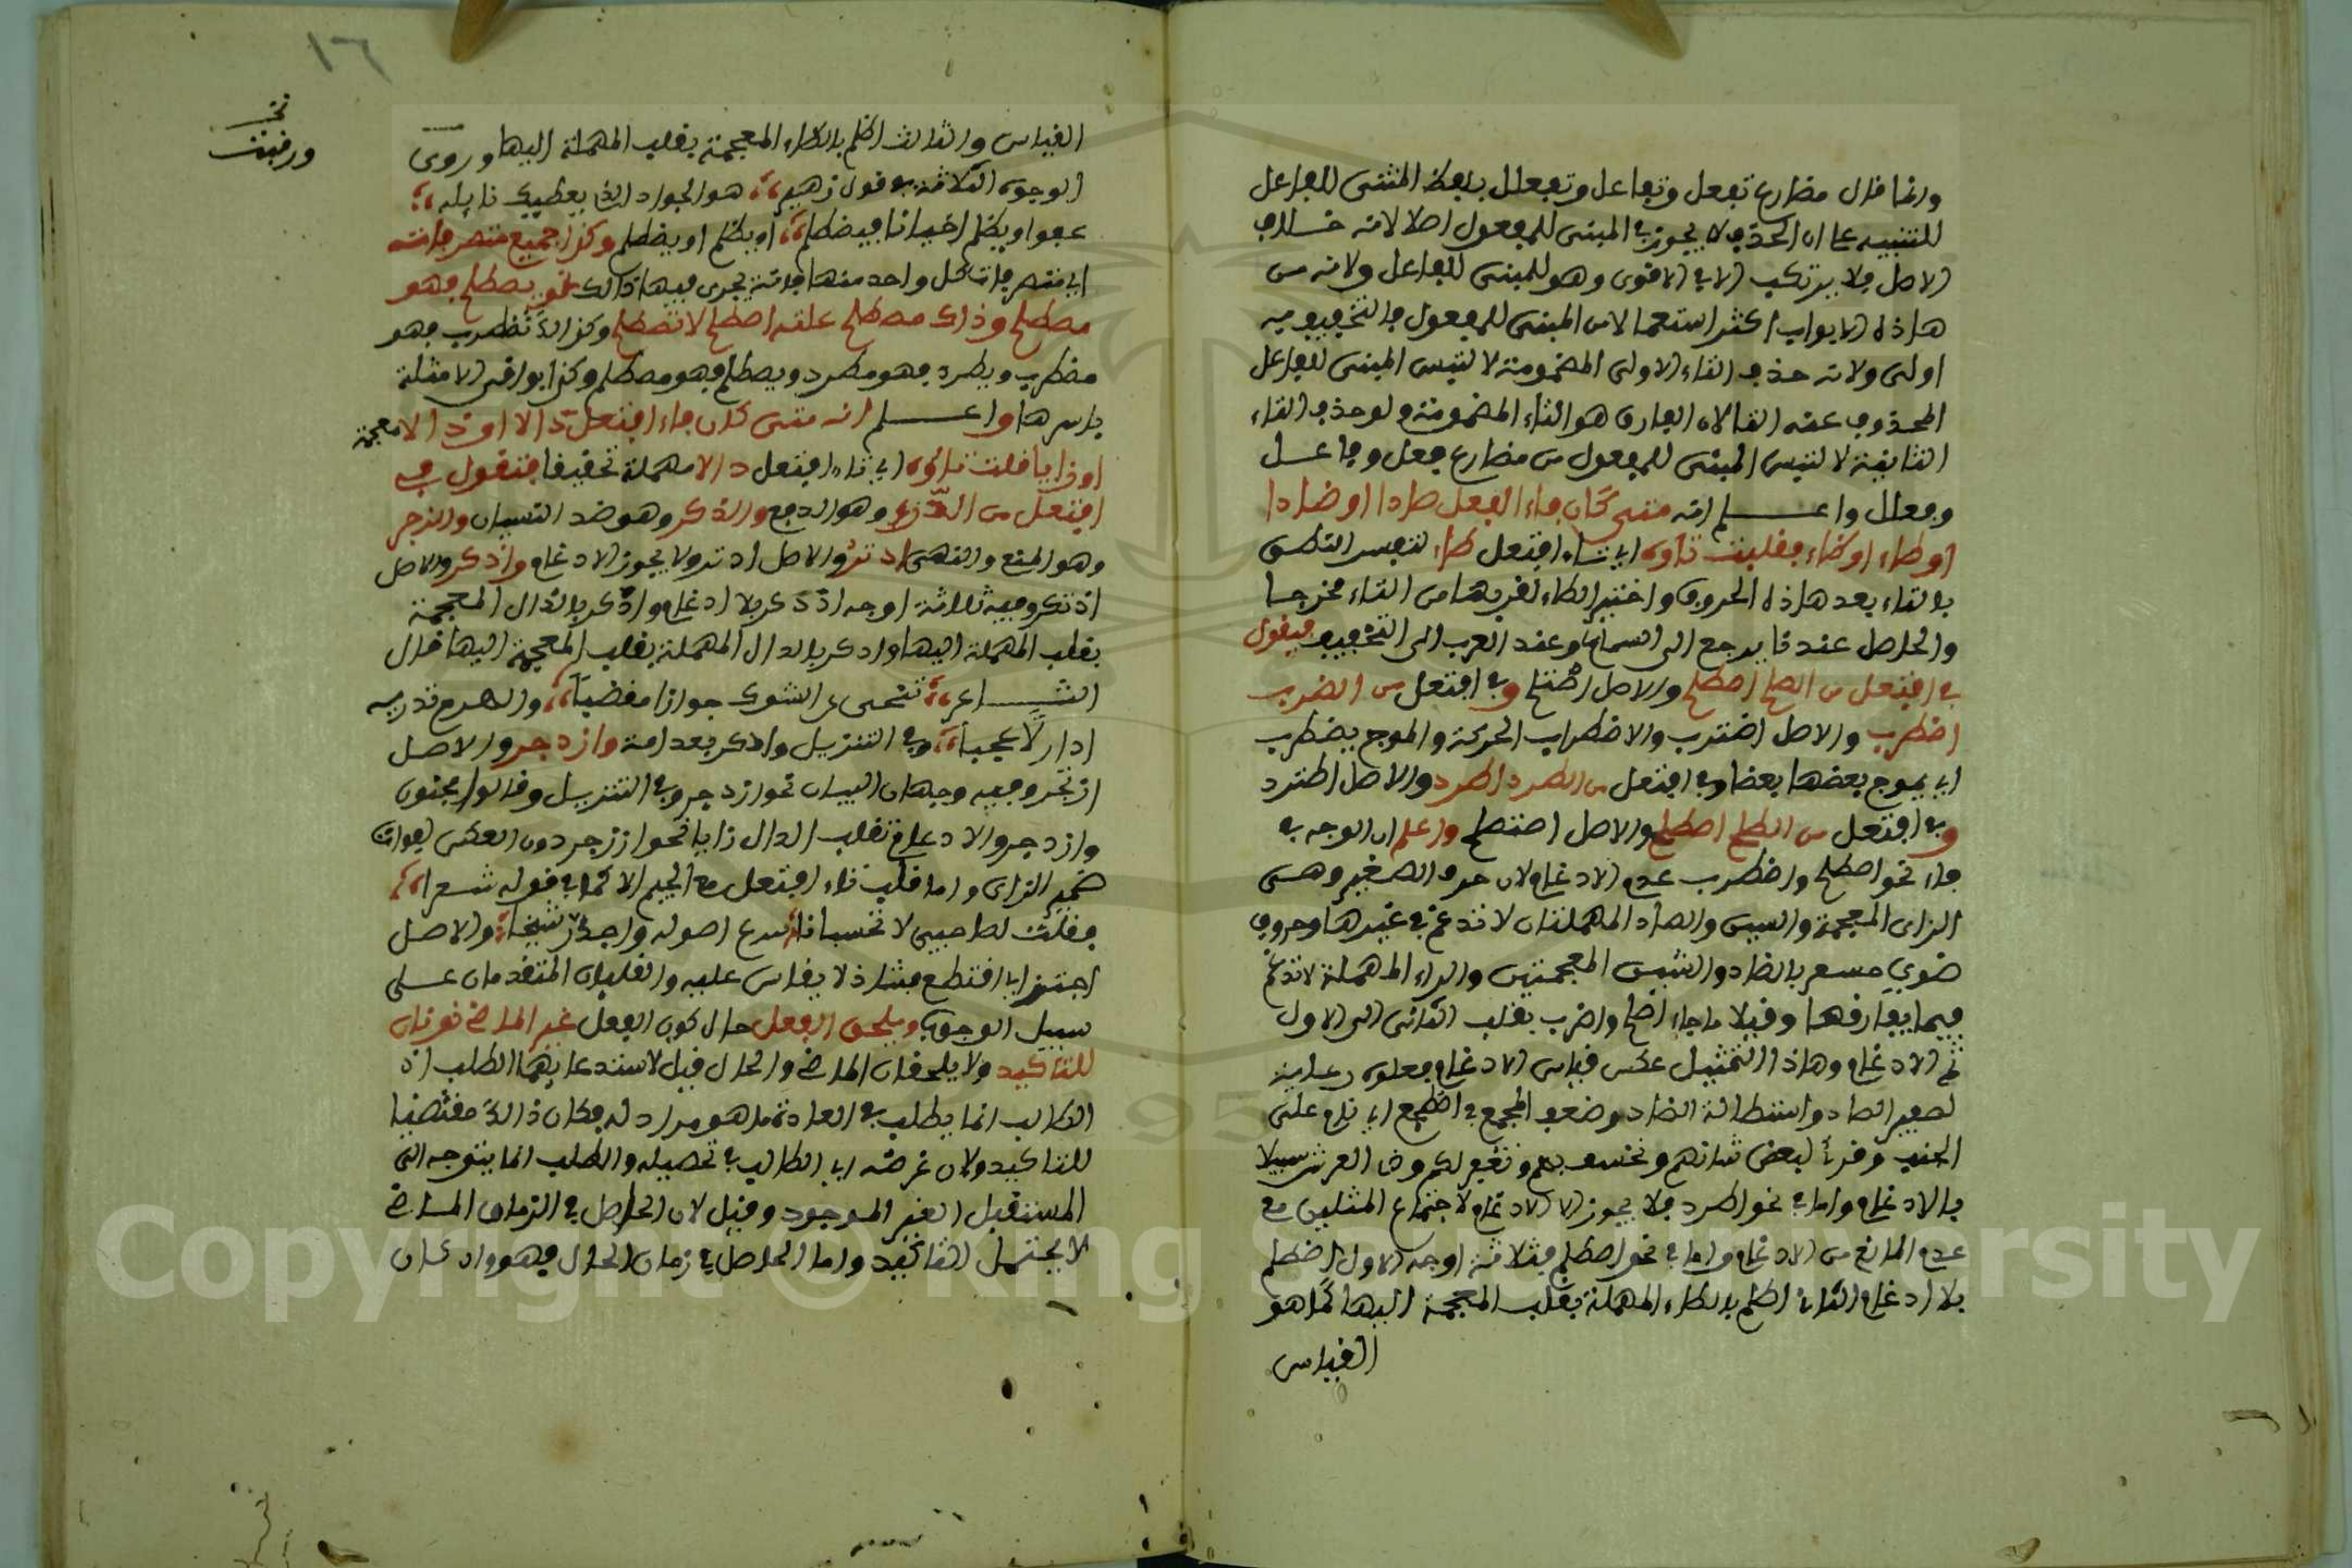 وانما قال مضارع تفعل وتفاعل وتفعلل بلفظ المثنى للفاعل
للتنبيه على ان الحذف لا يجوز في المبنى للمفعول اصلا لانه خلاف
الاصل فلا يرتكب الا في الاقوى وهو للمبنى للفاعل ولانه من
هاذه الابواب اكثر استعمالا من المبنى للمفعول فالتخفيف به
اولى ولانه حذف التاء الاولى المضمومة لالتبس المبنى للفاعل
المحذوف عنه التا لان الفارق هو التاء المضمومة ولو حذف التاء
الثانية لالتبس المبنى للمفعول من مضارع فعل وفاعل
وفعلل واعلم انه متى كان فاء الفعل صادا او ضادا
او طاء او ظاء فقلبت تاوه اي تاء افتعل طاء لتعسر النطق
بالتاء بعد هاذه الحروف واختير الطاء لقربها من التاء مخرجا
والحاصل عندنا يرجع الى السماع وعند العرب الى التخفيف فيقول
في افتعل من الصلح اصطلح والاصل اصتلح وفي افتعل من الضرب
اضطرب والاصل اضترب والاضطراب الحركة والموج يضطرب
اي يموج بعضها بعضا وفي افتعل من الطرد اطرد والاصل اطترد
وفي افتعل من الصلح اصطلح والاصل اصتلح واعلم ان الوجه في
فاء نحو اصطلح واضطرب عدم الادغام لان حرو الصغير وهى
الزاى المعجمة والسين والصاد المهملتان لا تدغم في غيرها وحروف
ضوى مسعر بالضاد والشين المعجمتين والراء المهملة لا تدغم
فيما يقاربها وقيلا ما جاء اصلح واضرب بقلب الثانى الى الاول
ثم الادغام وهاذا التمثيل عكس قياس الادغام فعلوه رعاية
لصفير الصاد واستطالة الضاد وضعف المجمع في اضطجع اي نام على
الجنب وقرئ لبعض شانهم ونخسف بهم ونغفر لكم وذا العرش سبيلا
بالادغام واما في نحو اطرد فلا يجوز الا الادغام لاجتماع المثلين مع
عدم المانع من الادغام واما في نحو اضطلم فثلاثة اوجه الاول اضطلم
بلا ادغام الثاني اطلم بالطاء المهملة بقلب المعجمة اليها كما هو
القياس
١٦
ورقبت
القياس والثالث اظلم بالظاء المعجمة بقلب المهملة اليها وروى
الوجوه الثلاثة في قول زهير هو الجواد الذي يعطيك نايله
عفوا ويظلم احيانا فيضطلم او يظلم او يضطلم وكذا جميع متصرفاته
اي متصرفات كل واحد منها فانه يجرى فيها ذالك نحو يصطلح فهو
مصطلح وذاك مصطلح عليه اصطلح لا تصطلح وكذالك تضطرب فهو
مضطرب ويطرد فهو مطرد ويصطلح فهو مصطلح وكذا بواقى الامثلة
باسرها واعلم انه متى كان فاء افتعل دالا او ذالا معجمة
او زايا قلبت تاوه اي تاء افتعل دالا مهملة تحقيقا فتقول في
افتعل من الدرء وهو الدفع والذكر وهو ضد النسيان والزجر
وهو المنع والنهى ادترؤ والاصل ادترو لا يجوز الادغام واذكر والاصل
اذتكر وفيه ثلاثة اوجه اذدكر بلا ادغام واذكر بالذال المعجمة
بقلب المهملة اليها وادكر بالدال المهملة بقلب المعجمة اليها قال
الشاعر تنحى على الشوك جرازا مقضبا والهرم تذريه
اذدرآ عجبا وفي التنزيل وادكر بعد امة وازدجر والاصل
ازتجر وفيه وجهان البيان نحو ازدجر وفي التنزيل وقالوا مجنون
وازدجر والادغام تقلب الدال زايا نحو ازجر دون العكس لفوات
صفير الزاى واما قلب تاء افتعل مع الجيم الا كما في قوله شعرا
فقلت لصاحبي لا تحبسانا بنزع اصوله واجدز شيحا والاصل
اجتز اي اقتطع فشاذ لا يقاس عليه والقلبان المتقدمان على
سبيل الوجوب ويلحق الفعل حال كون الفعل غير الماضي نونان
للتاكيد ولا يلحقان الماضي والحال قيل لاستدعائهما الطلب اذ
الطالب انما يطلب في العادة ما هو مراد له فكان ذالك مقتضيا
للتاكيد ولان غرضه اي الطالب في تحصيله والطلب انما يتوجه الى
المستقبل الغير الموجود وقيل لان الحاصل في الزمان الماضي
لا يحتمل التاكيد واما الحاصل في زمان الحال فهو وان كان